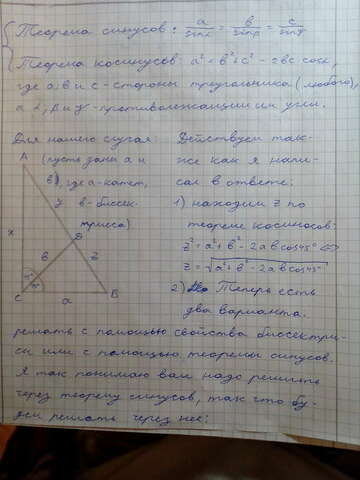 Теорема синусов: a/sinα = b/sinβ = c/sinγ
Теорема косинусов: a² = b² + c² - 2bc cosα,
где a, b и c - стороны треугольника (любого),
а α, β и γ - противолежащии им углы.
Для нашего случая:
(пусть даны a и
b), где a - катет,
b - биссек-
триса)
A
D
x
b
z
45°
45°
C
a
B
Действуем так-
же как я напи-
сал в ответе:
1) находим z по
теореме косинусов:
z² = a² + b² - 2ab cos45° ⇔
z = √a² + b² - 2ab cos45°
2) Теперь есть
два варианта:
решать с помощью свойства биссектри-
сы или с помощью теоремы синусов.
Я так понимаю вам надо решить
через теорему синусов, так что бу-
дем решать через неё: